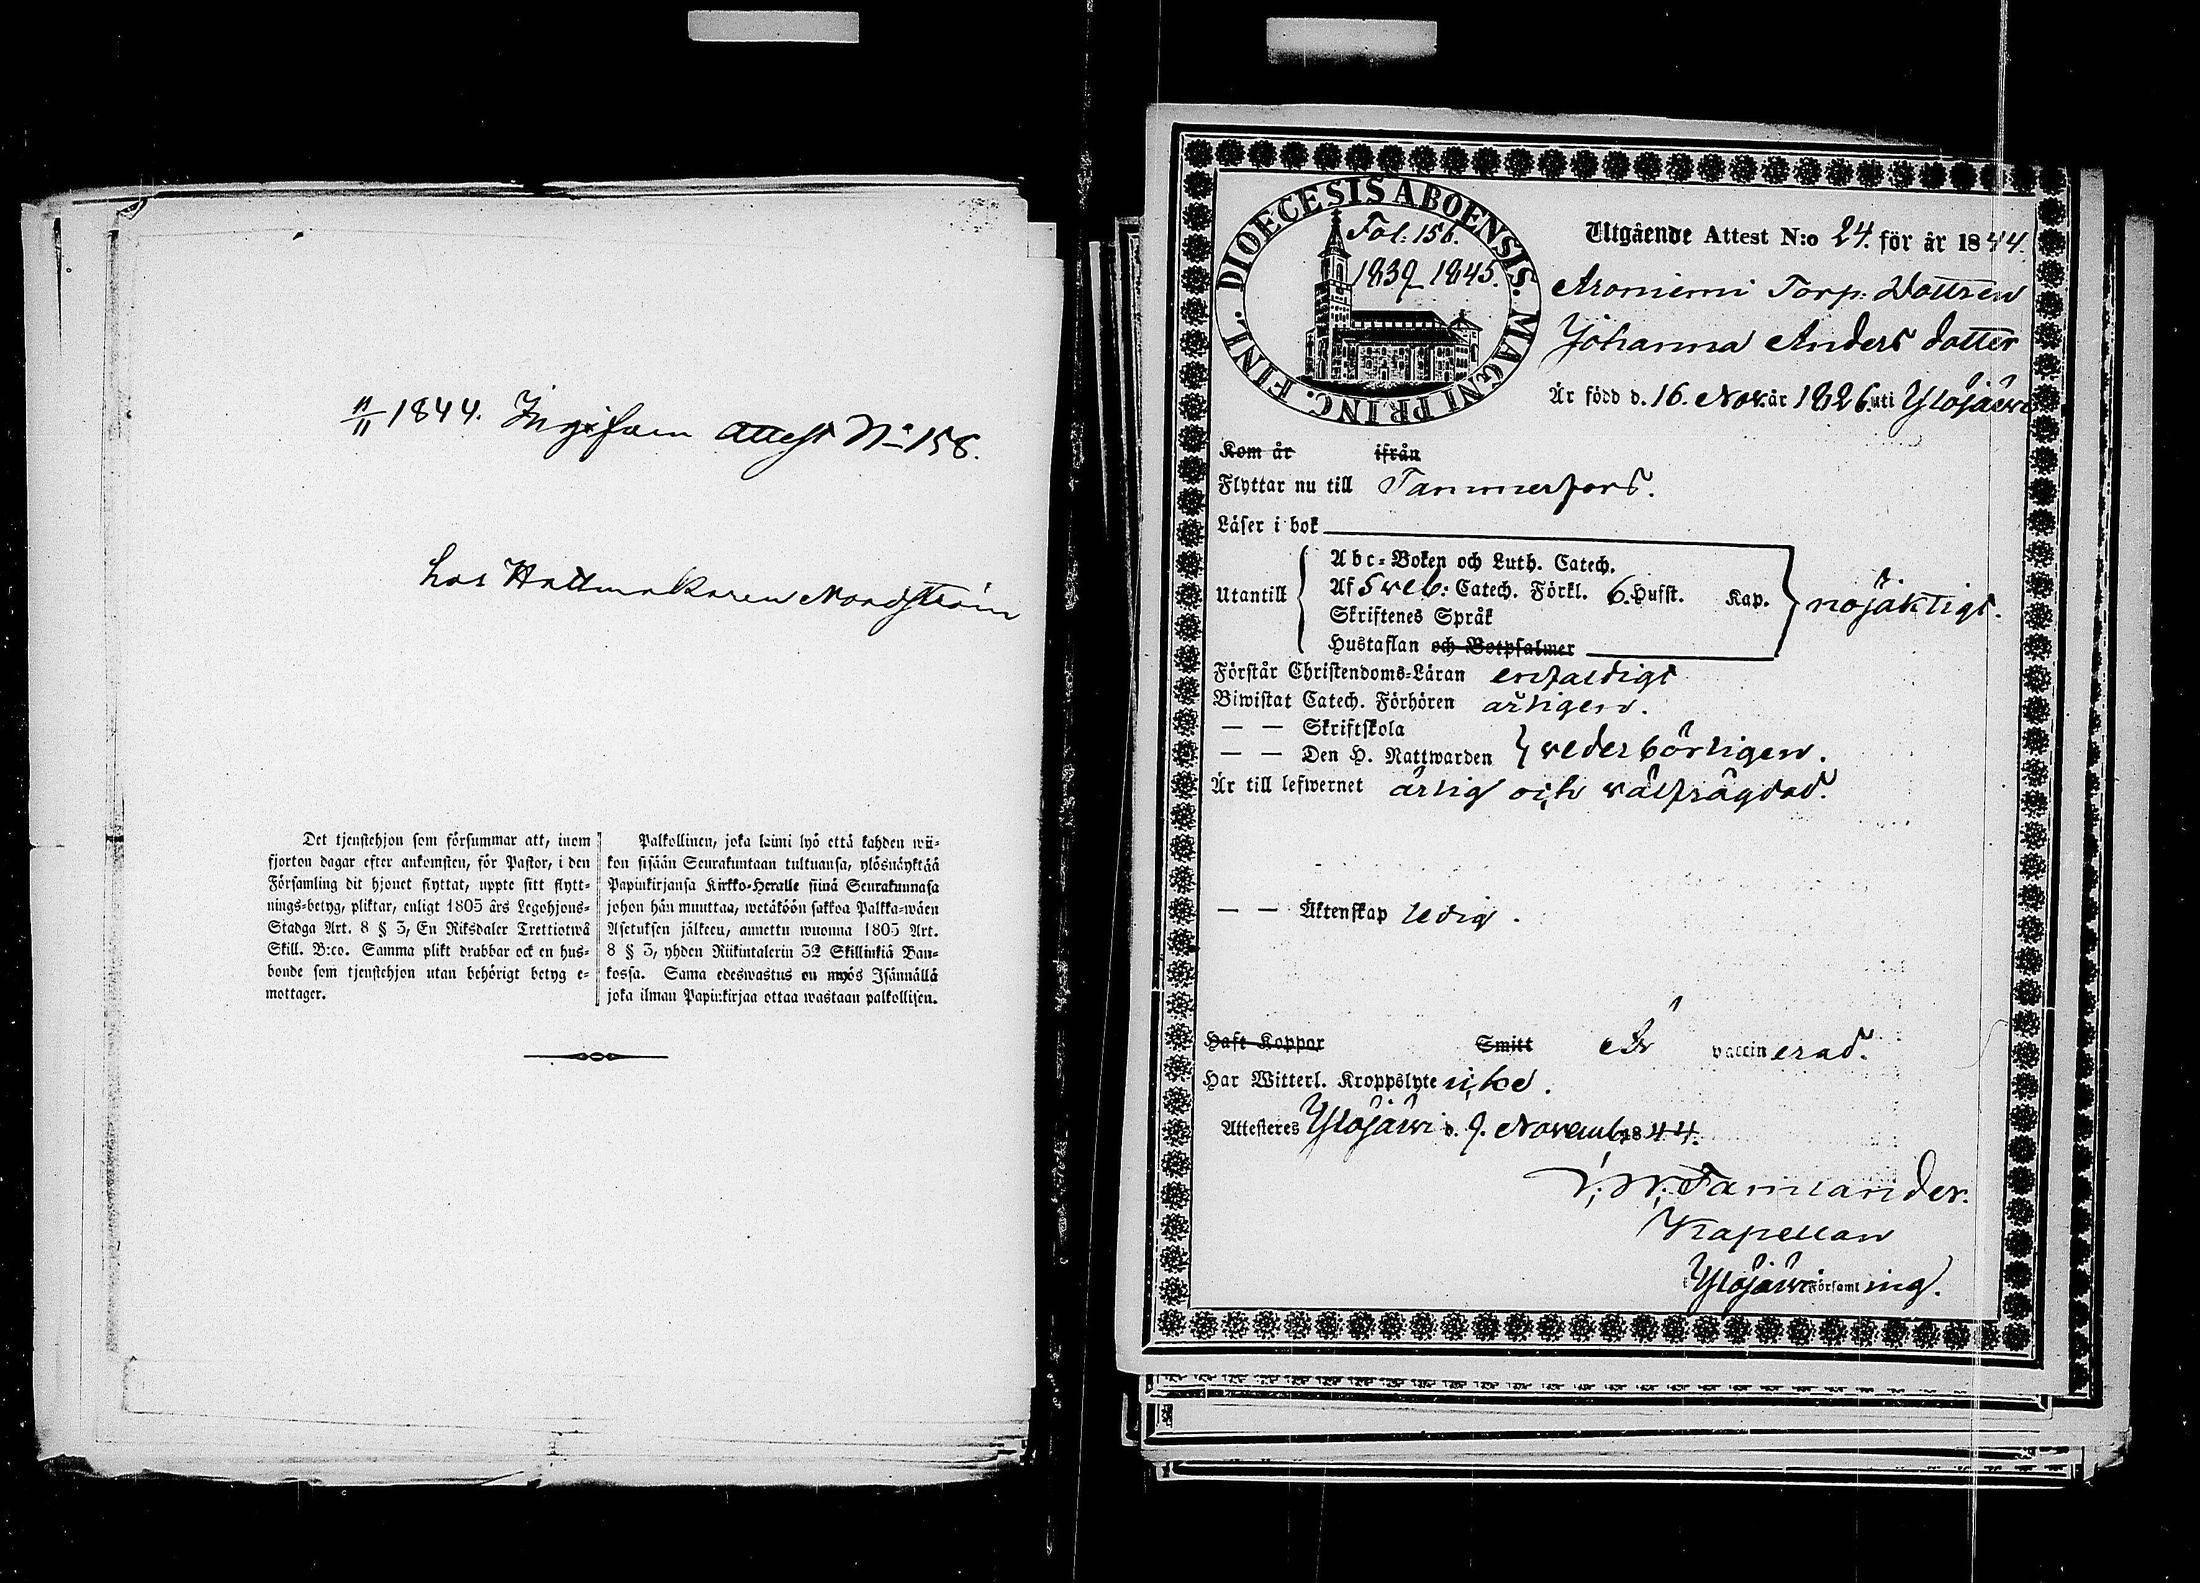 11/11 1844. Ingifven Attest No 158.
hos Hattmakaren Nordström
Det tjenstehjon som försummar att, inom
fjorton dagar efter ankomsten, för Pastor, i den
Församling dit hjonet flyttat, uppte sitt flytt-
nings-betyg, pliktar, enligt 1805 års Legohjons-
Stadga Art. 8 § 3, En Riksdaler Trettiotwå
Skill. B:co. Samma plikt drabbar ock en hus-
bonde som tjenstehjon utan behörigt betyg e-
mottager.
Palkollinen, joka laimi lyö että kahden wii-
kon sisään Seurakuntaan tultuansa, ylösnäyttää
Papinkirjansa Kirkko-Herralle siinä Seurakunnasa
johon hän muuttaa, wetäköön sakkoa Palkka-wäen
Asetuksen jälkeen, annettu wuonna 1805 Art.
8 § 3, yhden Riikintalerin 32 Skillinkiä Ban-
kossa. Sama edeswastus on myös Isännällä
joka ilman Papinkirjaa ottaa wastaan palkollisen.
DIOECESIS ABOENSIS. MAGNI PRINC. FINL.
Fol: 156.
1839_1845.
Utgående Attest N:o 24. för år 1844.
Aroniemi Torp. Dottren
Johanna Anders dotter
Är född d. 16. Nov. år 1826. uti Ylöjärvi
Kom år ifrån
Flyttar nu till Tammerfors.
Läser i bok
Utantill
Abc-Boken och Luth. Catech.
Af Sveb: Catech. Förkl. 6. Hufst. Kap.
Skriftenes Språk
Hustaflan och Botpsalmer
nöjaktigt.
Förstår Christendoms-Läran enfaldigt
Biwistat Catech. Förhören årligen.
— — Skriftskola
— — Den H. Nattwarden } vederbörligen.
Är till lefwernet ärlig och välfrägdad.
— — Äktenskap ledig.
Haft Koppor Smitt Är vaccinerad.
Har Witterl. Kroppslyte icke.
Attesteres Ylöjärvi d. 9. Novemb 1844.
Tamlander.
Kapellan
i Ylöjärvi Församling.